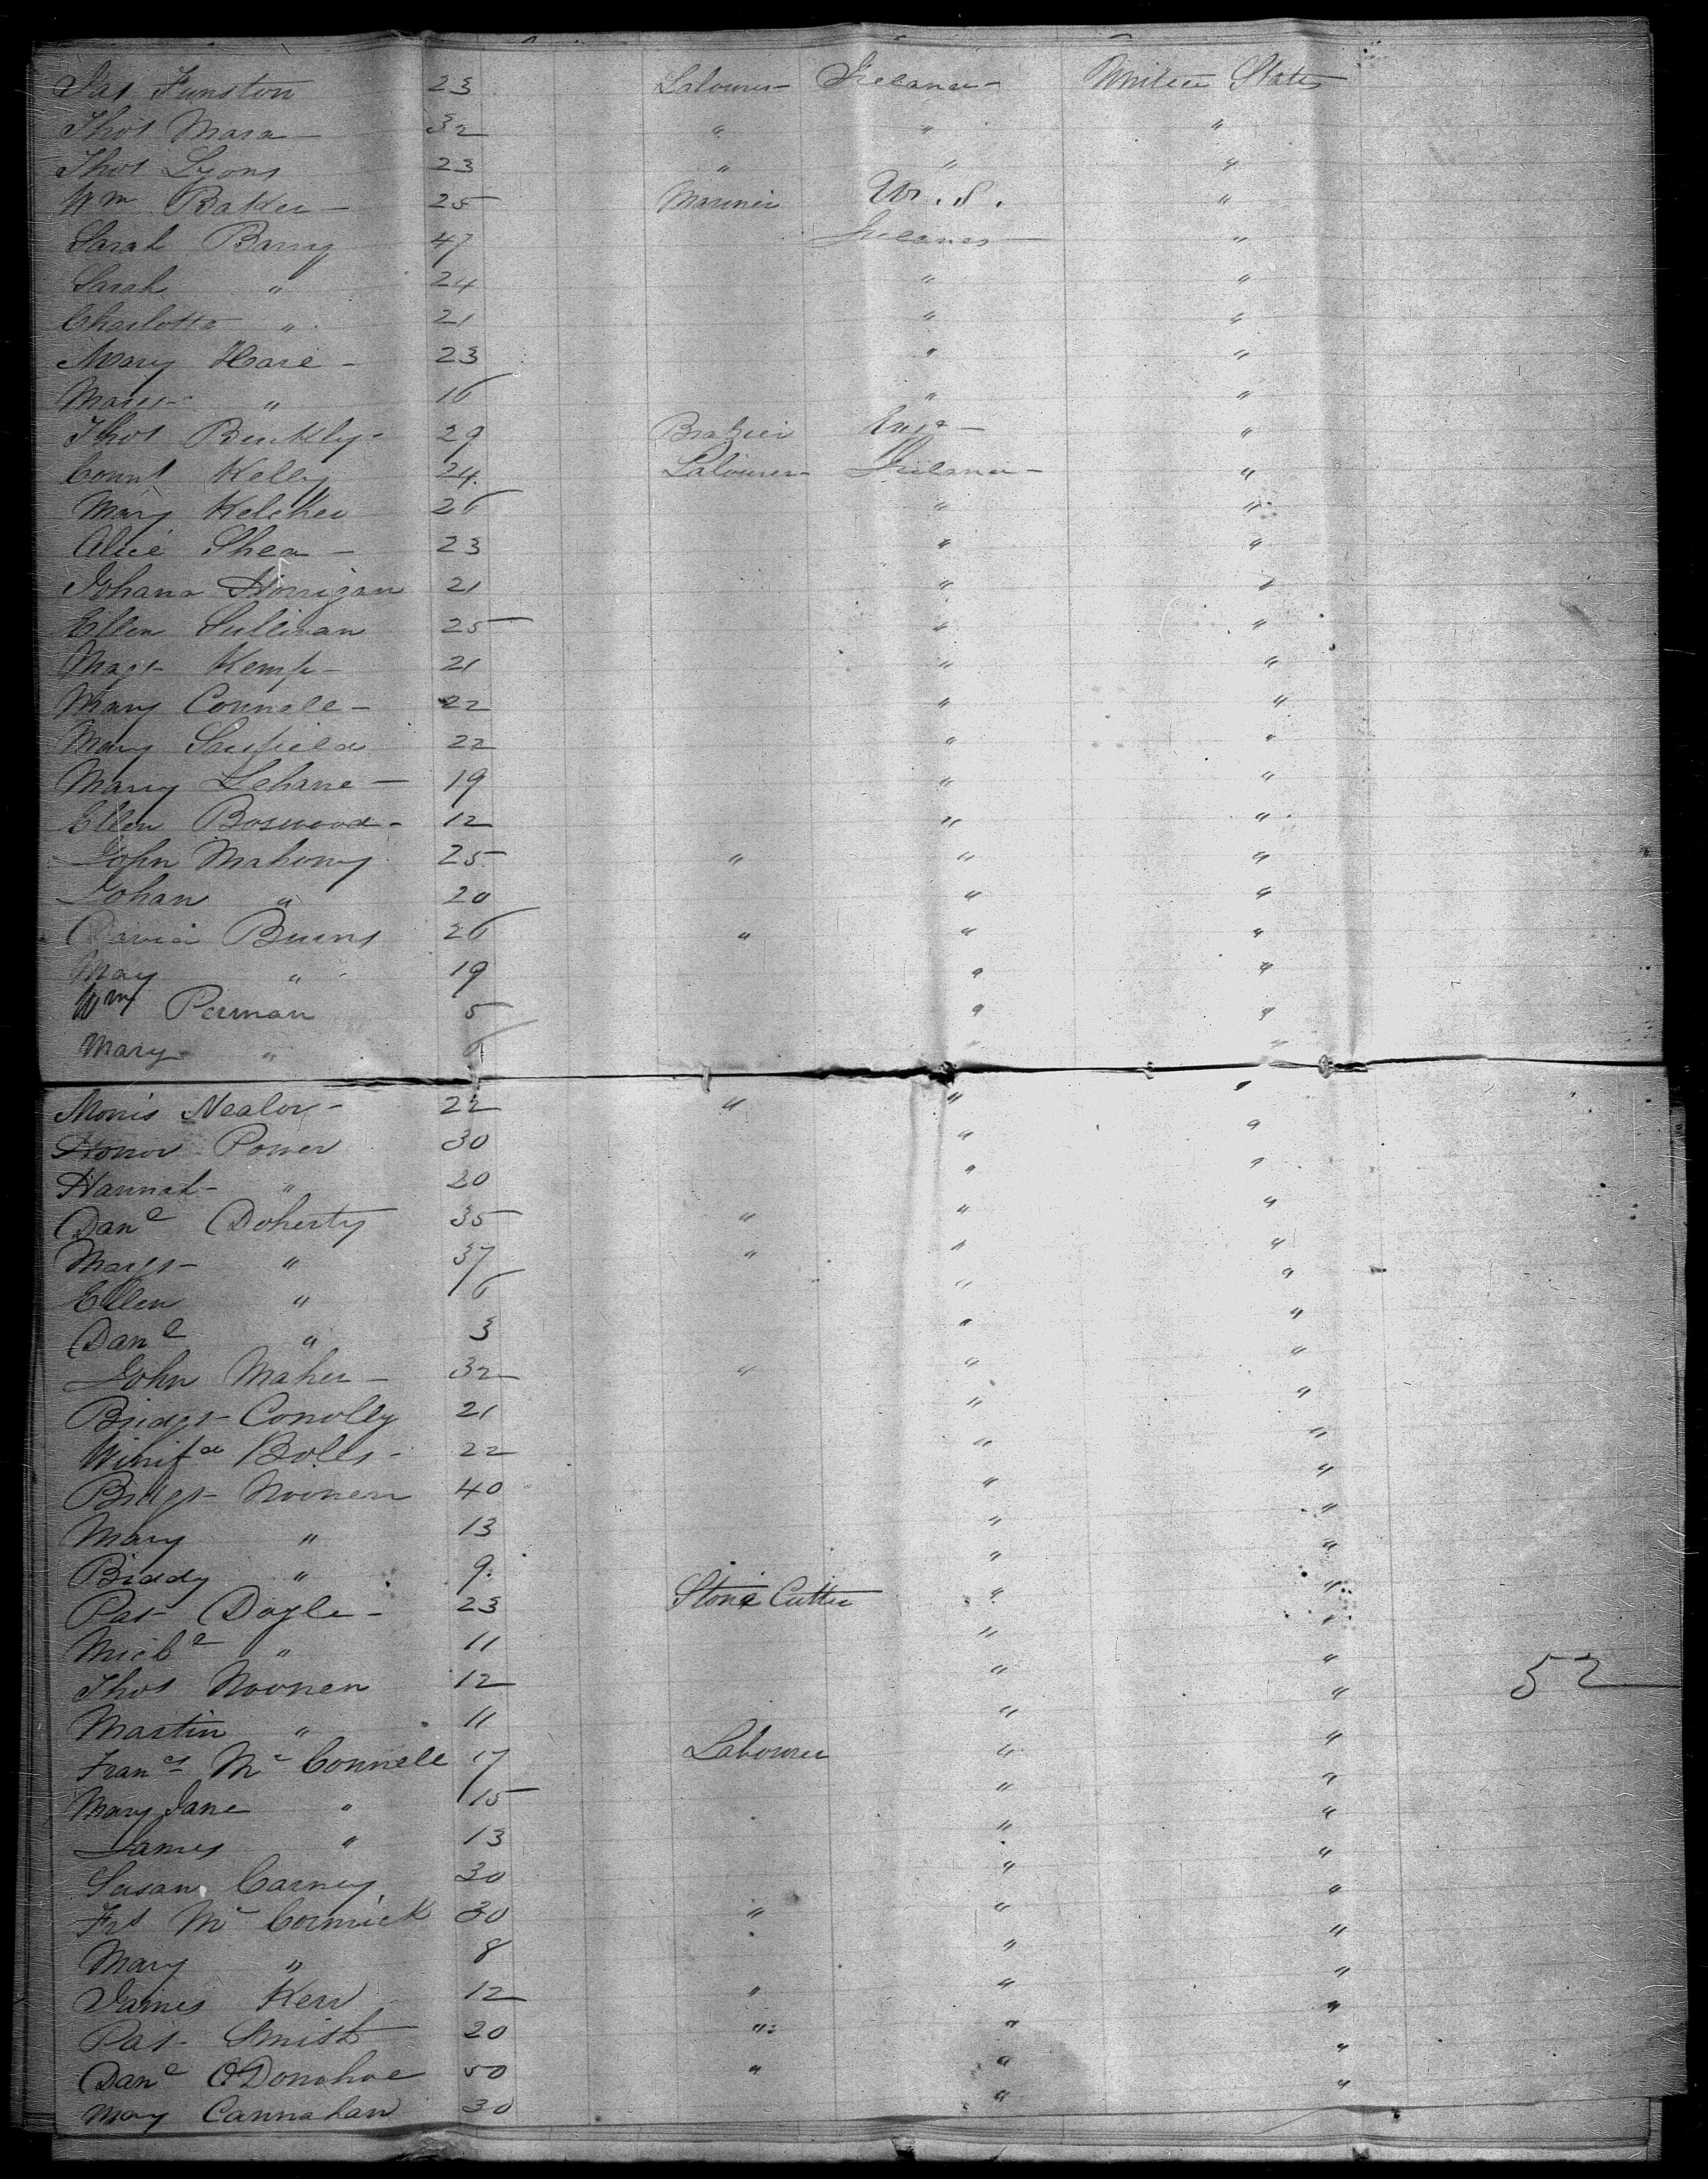 Jas Funston 23 Labourer Ireland United States
Thos Mara 32 " " "
Thos Lyons 23 " " "
Wm Baker 25 Mariner U. S. "
Sarah Barry 47 Ireland "
Sarah " 24 " "
Charlotte " 21 " "
Mary Hare 23 " "
Margt " 16 " "
Thos Buckley 29 Brazier Engd "
Connl Kelly 24 Labourer Ireland "
Mary Keleher 26 " "
Alice Shea 23 " "
Johana Horrigan 21 " "
Ellen Sullivan 25 " "
Magt Kemp 21 " "
Mary Connell 22 " "
Mary 22 " "
Mary Lehane 19 " "
Ellen Boswood 12 " "
John Mahony 25 " " "
Johan " 20 " "
David Burns 26 " " "
May " 19 " "
Wm Perman 5 " "
Mary " 6 " "
Morris Nealon 22 " " "
Honor Power 30 " "
Hannah " 20 " "
Danl Doherty 35 " " "
Margt " 37 " " "
Ellen " 6 " "
Danl " 3 " "
John Maher 32 " " "
Bridgt Conolly 21 " "
Winifd Boles 22 " "
Bridgt Noonen 40 " "
Mary " 13 " "
Biddy " 9 " "
Pat Doyle 23 Stone Cutter " "
Michl " 11 " "
Thos Noonen 12 " "
52
Martin " 11 " "
Francs Mc Connell 17 Labourer " "
Mary Jane " 15 " "
James " 13 " "
Susan Carney 30 " "
Frs Mc Cormick 30 " " "
Mary " 8 " "
James Kerr 12 " " "
Pat Smith 20 " " "
Danl O'Donohoe 50 " " "
May Cannahan 30 " "